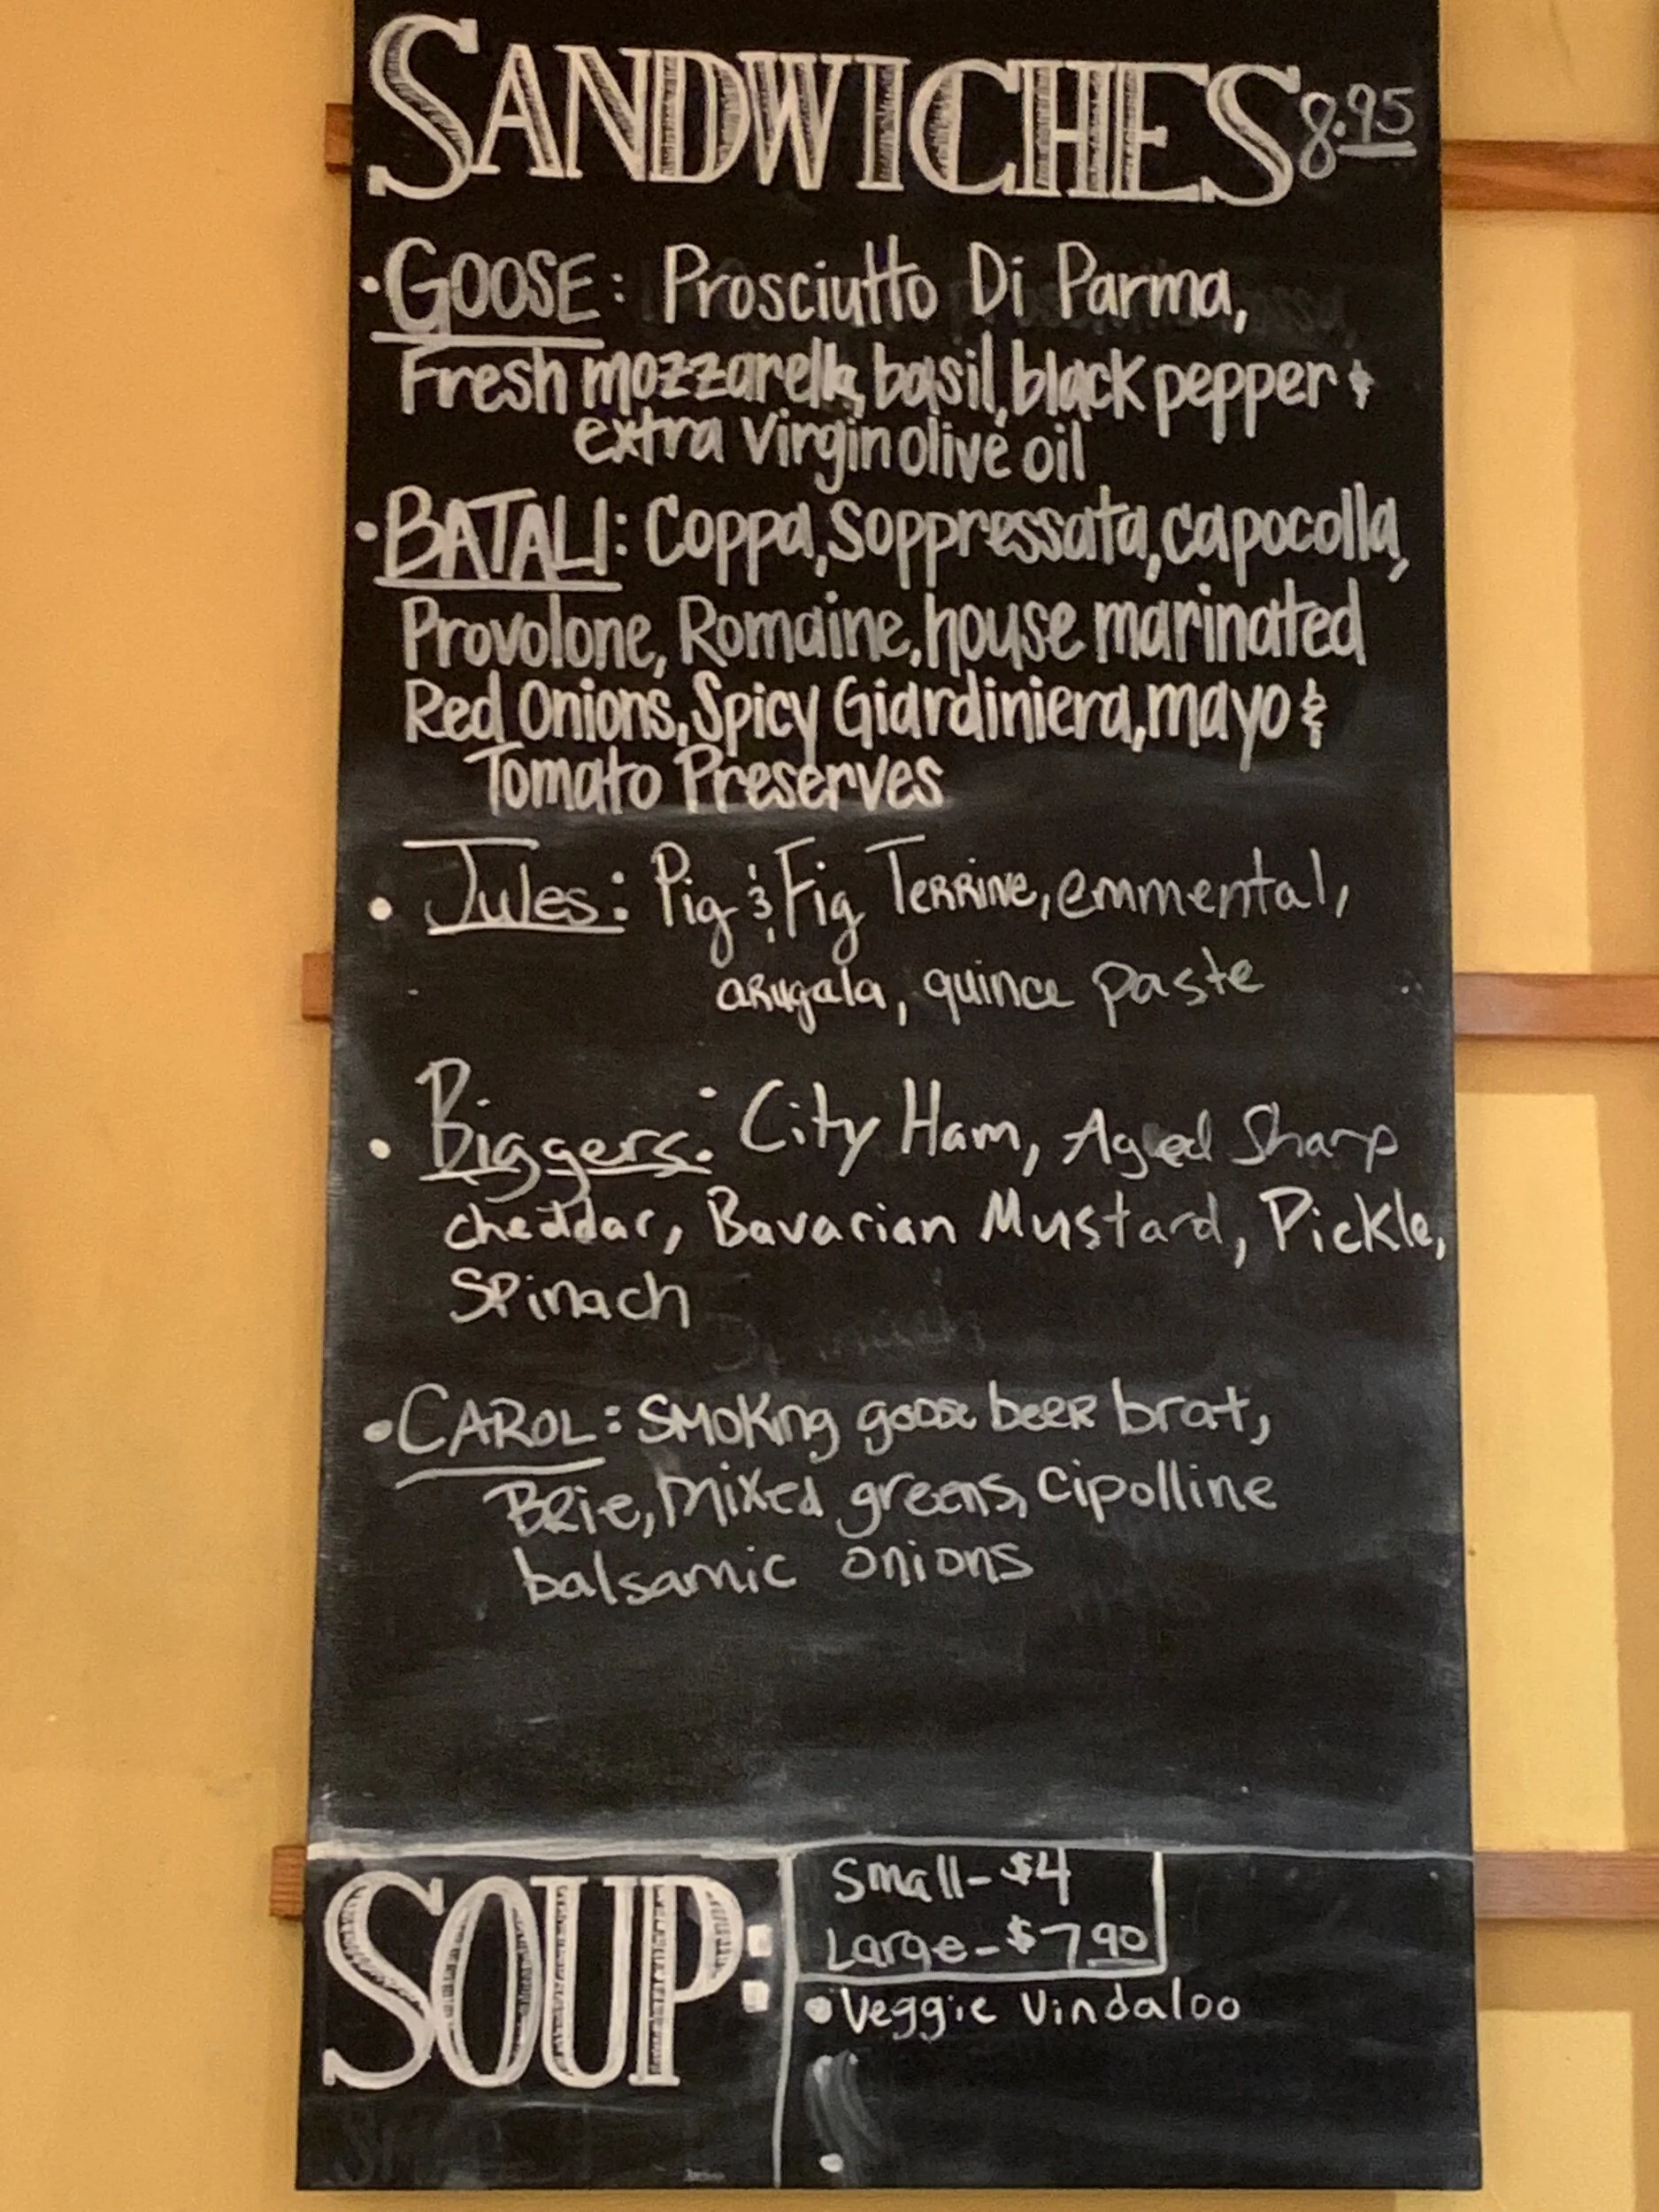 SANDWICHES 8.95
• GOOSE: Prosciutto Di Parma,
Fresh mozzarella, basil, black pepper &
extra virgin olive oil
• BATALI: Coppa, Soppressata, capocolla,
Provolone, Romaine, house marinated
Red Onions, Spicy Giardiniera, mayo &
Tomato Preserves
• Jules: Pig & Fig Terrine, emmental,
arugala, quince paste
• Biggers: City Ham, Aged Sharp
cheddar, Bavarian Mustard, Pickle,
Spinach
• CAROL: Smoking goose beer brat,
Brie, mixed greens, cipolline
balsamic onions
SOUP:
Small - $4
Large - $7.90
• Veggie Vindaloo
•